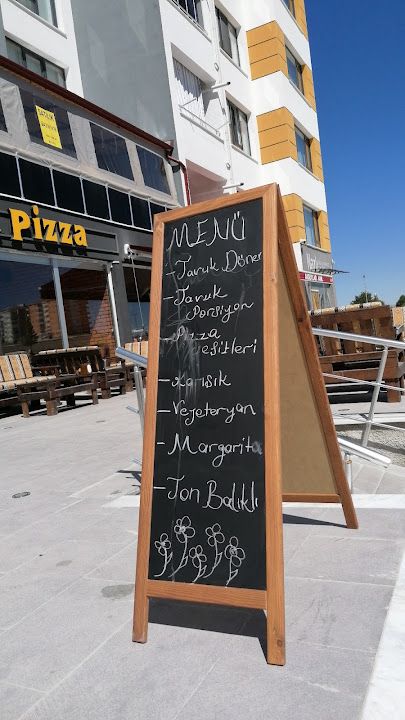 Pizza
MENÜ
- Tavuk Döner
- Tavuk
Porsiyon
- Pizza
Çeşitleri
- Karışık
- Vejeteryan
- Margarita
- Ton Balıklı